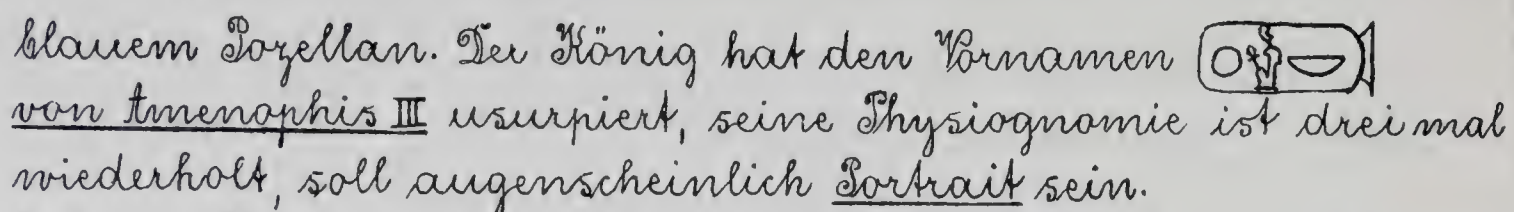 blauem Pozellan. Der König hat den Vornamen
von Amenophis III usurpiert, seine Physiognomie ist dreimal
wiederholt, soll augenscheinlich Portrait sein.